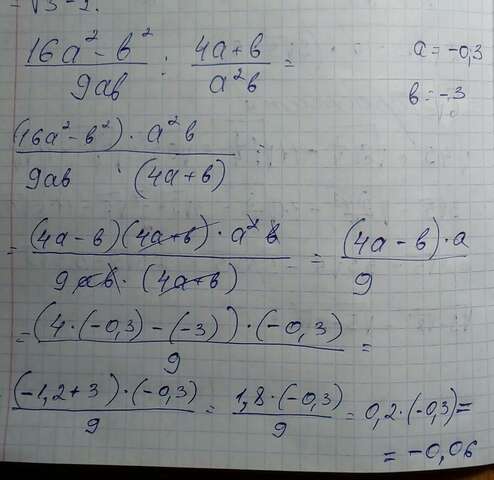 = √3 - 2.
16a² - b² / 9ab : 4a + b / a²b = a = -0,3
b = -3
(16a² - b²) · a²b / 9ab · (4a + b) =
= (4a - b)(4a + b) · a² b / 9 ab · (4a + b) = (4a - b) · a / 9
= (4 · (-0,3) - (-3)) · (-0,3) / 9 =
(-1,2 + 3) · (-0,3) / 9 = 1,8 · (-0,3) / 9 = 0,2 · (-0,3) =
= -0,06